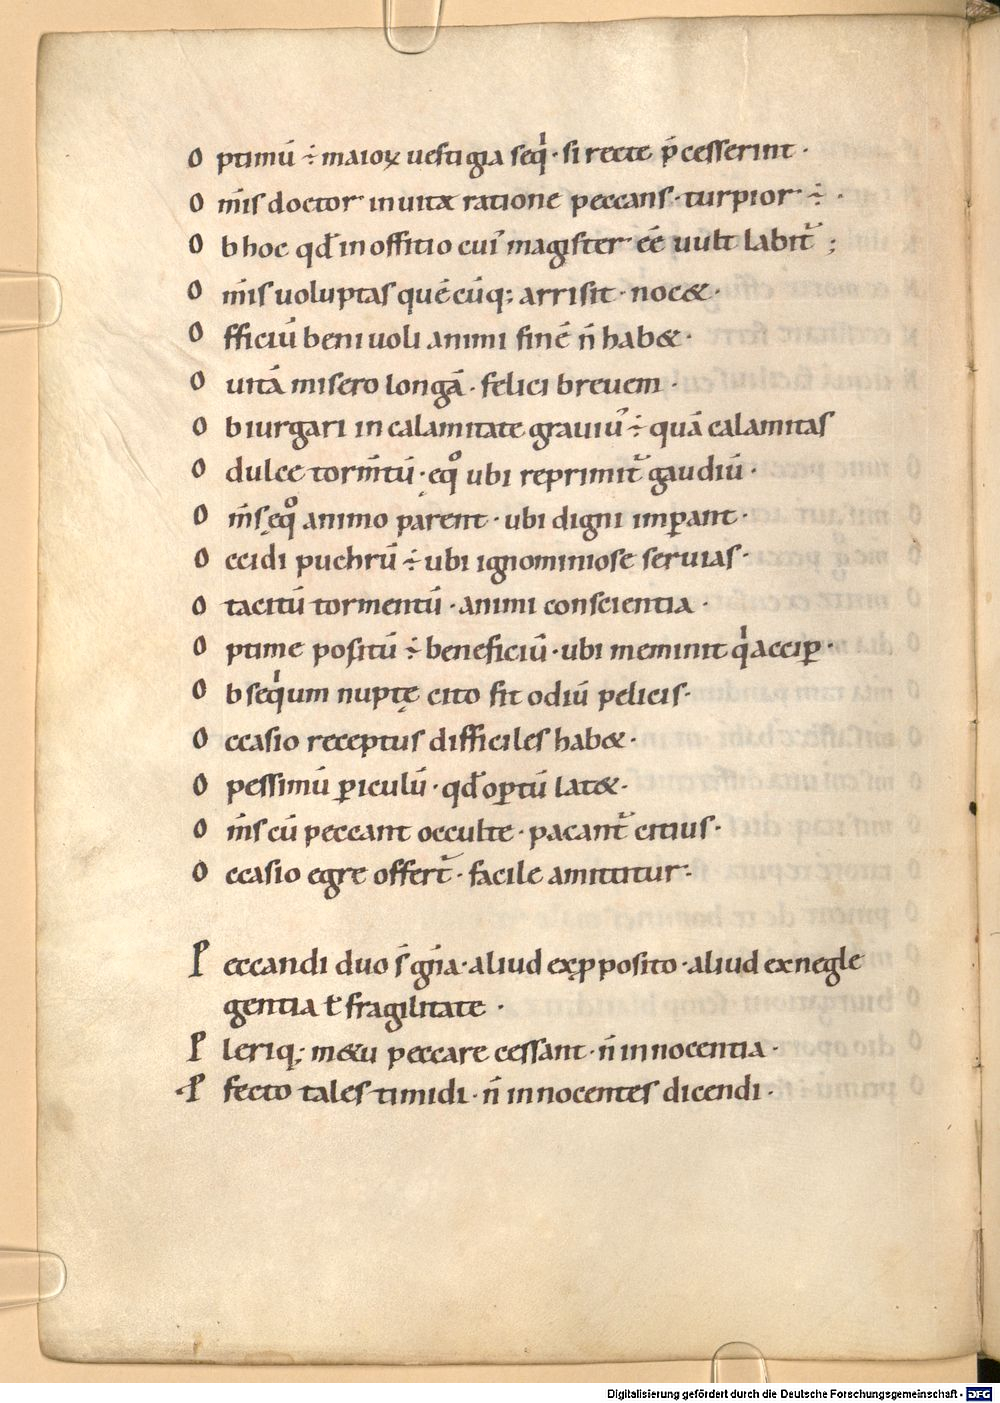 O ptimū ÷ maioꝝ uestigia seqͥ · si recte p̄cesserint ·
O m̄is doctor in uitæ ratione peccans · turpior ÷ ·
O b hoc qđ in offitio cui᾽ magister eē uult labit᷑ ;
O m̄is uoluptas quēcūq; arrisit · noc& ·
O fficiū beniuoli animi finē n̄ hab& ·
O uitā misero longā · felici breuem ·
O biurgari in calamitate grauiu᾽ ÷ quā calamitas
O dulce torm̄tū · ęqͦ ubi reprimit᷑ gaudiū ·
O m̄s ęqͦ animo parent · ubi digni imꝑant ·
O ccidi puchrū ÷ ubi ignominiose seruias ·
O tacitū tormentū · animi conscientia ·
O ptime positū ÷ beneficiū · ubi meminit qͥ acciꝑ ·
O bseqͥum nuptę cito fit odiū pelicis ·
O ccasio receptus difficiles hab& ·
O pessimū ꝑiculū · qđ oꝑtū lat& ·
O m̄s cū peccant occulte · pacant᷑ citius ·
O ccasio egre offert᷑ · facile amittitur ·
P eccandi duo s̄ gn̄a · aliud exꝓposito · aliud ex negle
gentia ł fragilitate ·
P leriq; m&u peccare cessant · n̄ innocentia ·
·P fecto tales timidi · n̄ innocentes dicendi ·
Digitalisierung gefördert durch die Deutsche Forschungsgemeinschaft - DFG